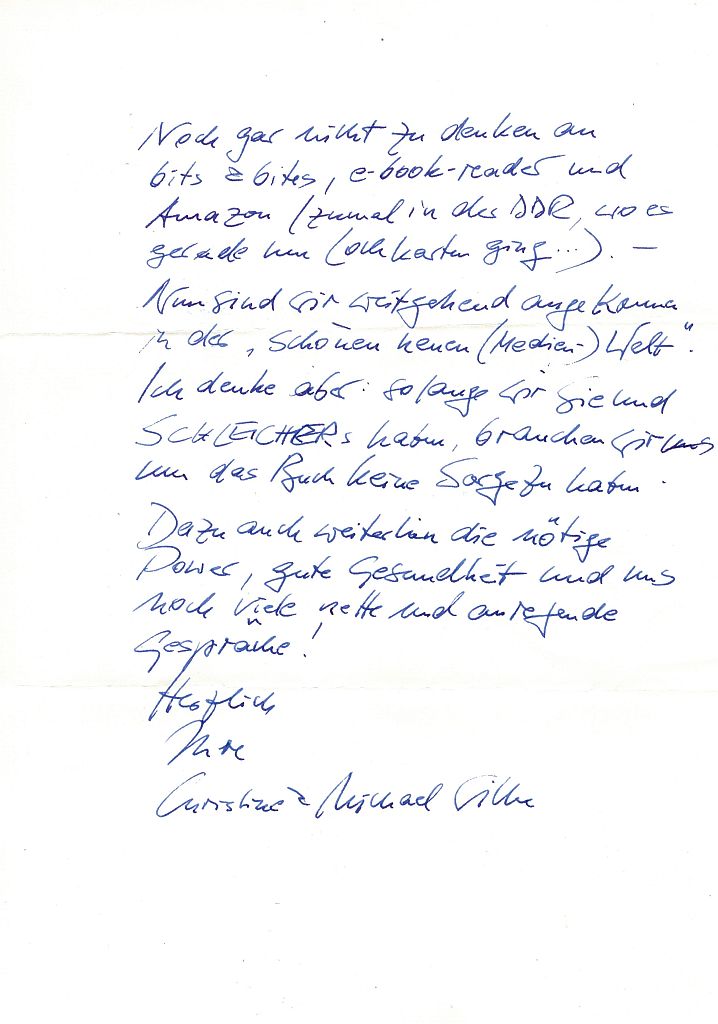 Noch gar nicht zu denken an
bits & bites, e-book-reader und
Amazon (zumal in der DDR, wo es
gerade um Lochkarten ging...). —
Nun sind wir weitgehend angekommen
in der „schönen neuen (Medien-) Welt".
Ich denke aber: solange wir Sie und
SCHLEICHERs haben, brauchen wir uns
um das Buch keine Sorge zu haben.
Dazu auch weiterhin die nötige
Power, gute Gesundheit und uns
noch viele nette und anregende
Gespräche!
Herzlich
Ihre
Christine & Michael